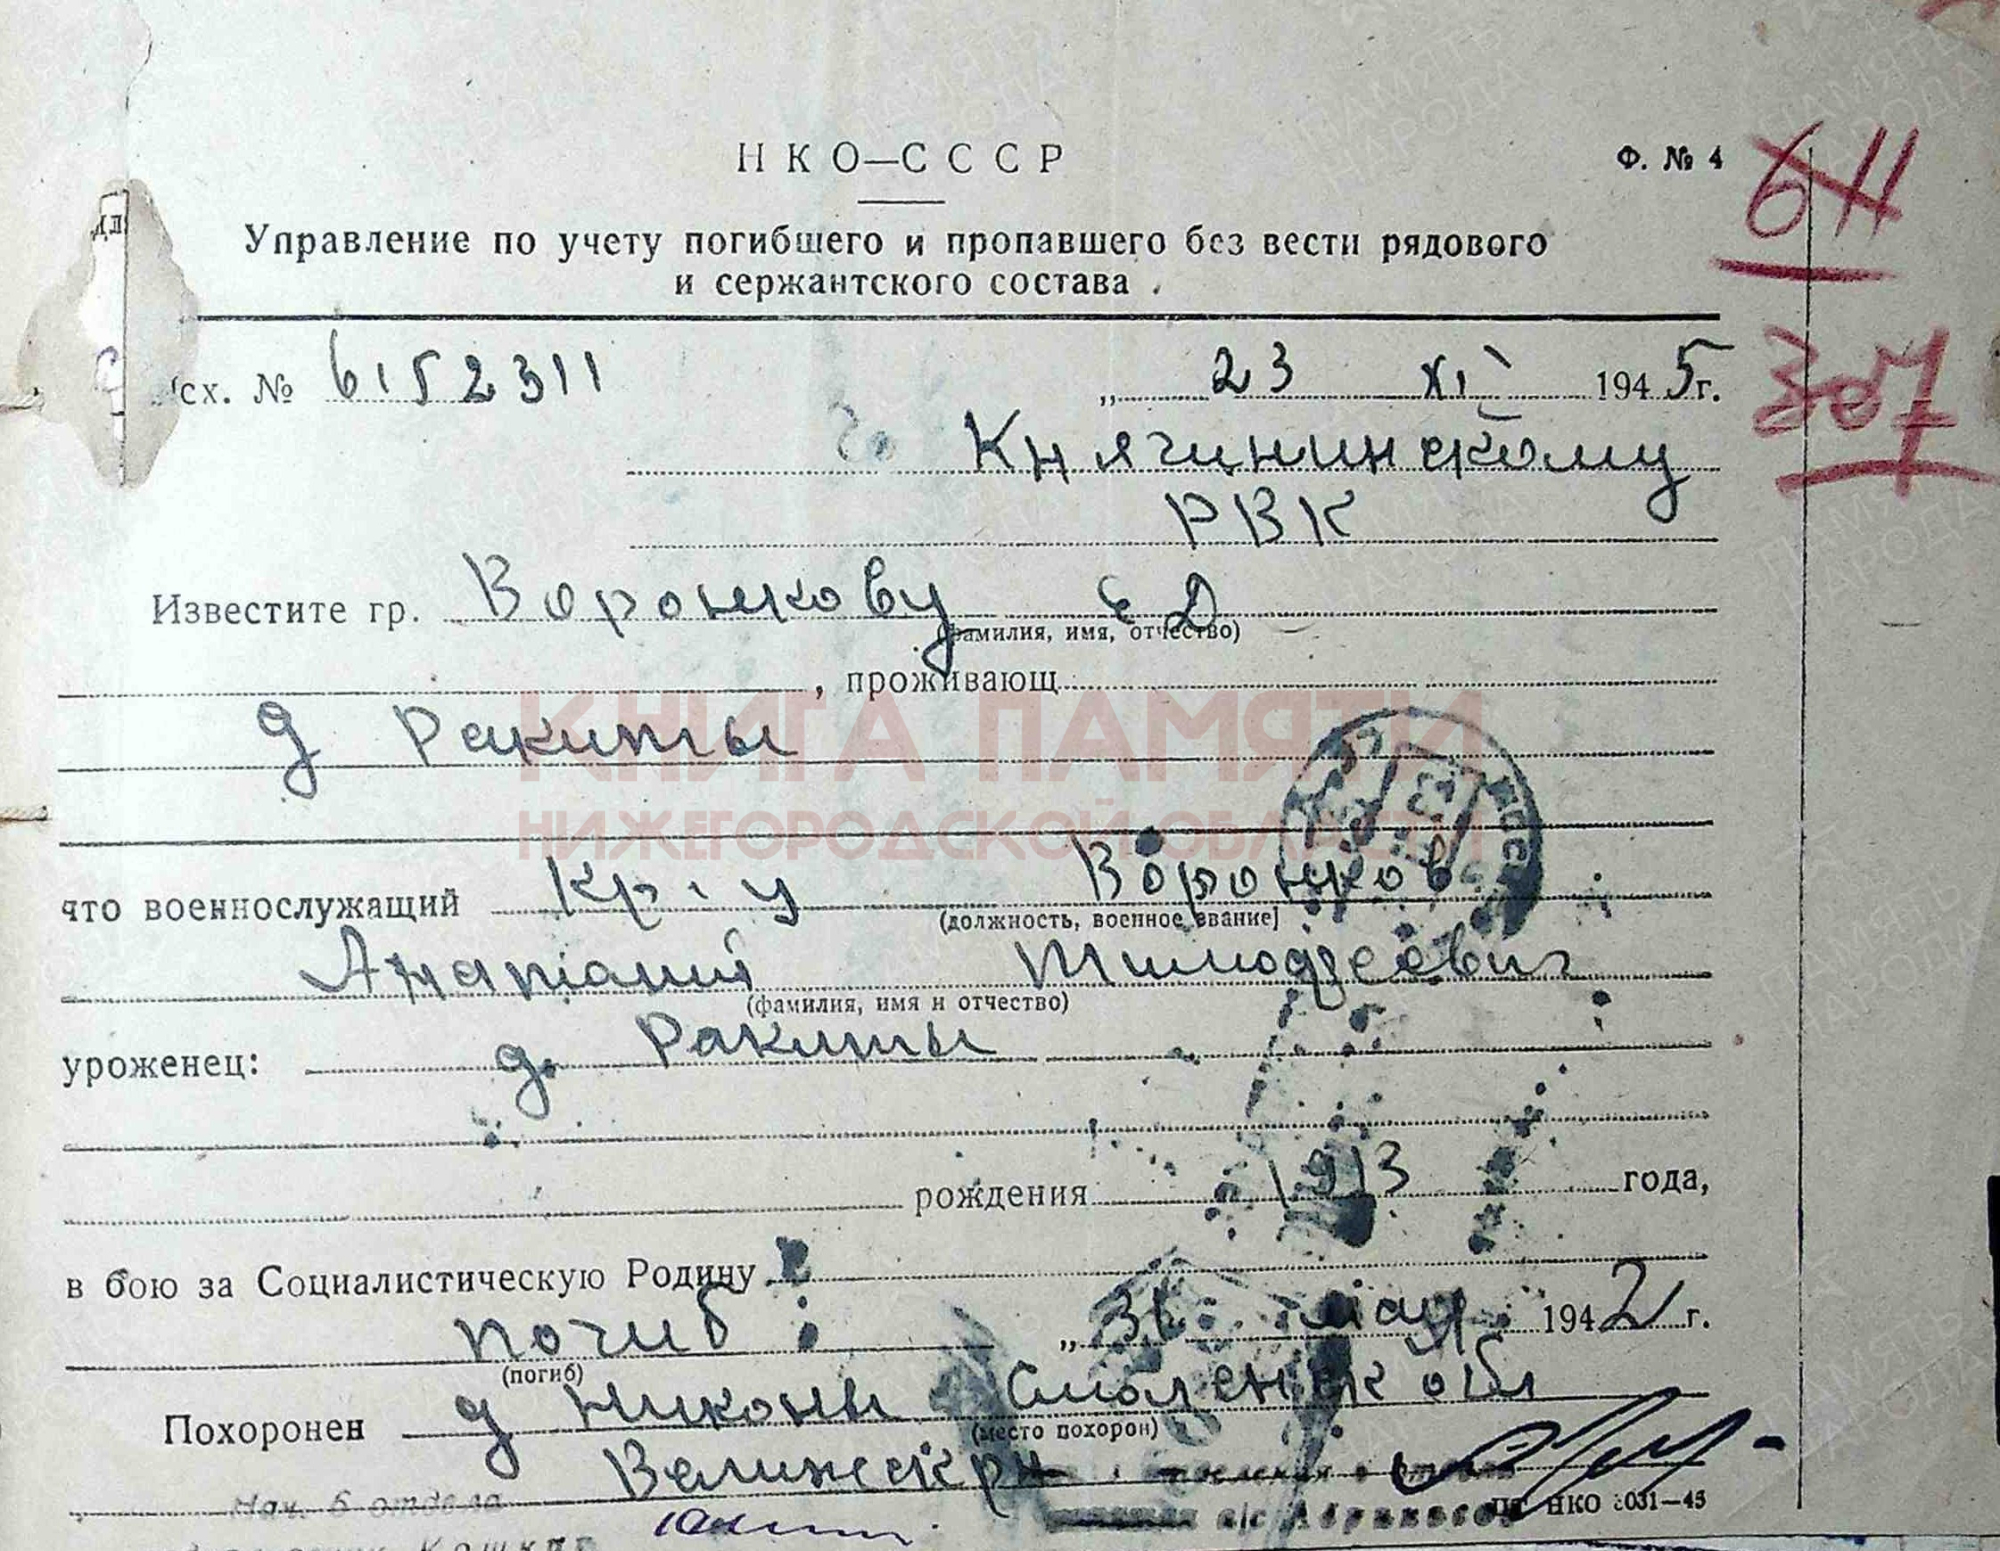 НКО—СССР
Ф. № 4
611
Управление по учету погибшего и пропавшего без вести рядового
и сержантского состава.
307
дл
сх. № 6152311 „ 23 XI 1945 г.
Княгининскому
РВК
Известите гр. Воронкову Е Д
(фамилия, имя, отчество)
, проживающ
д Ракиты
КНИГА ПАМЯТИ
НИЖЕГОРОДСКОЙ ОБЛАСТИ
что военнослужащий кр-ц Воронков
(должность, военное звание)
Анатолий Тимофеевич
(фамилия, имя и отчество)
уроженец: д. Ракиты
рождения 1913 года,
в бою за Социалистическую Родину
погиб „31 мая 1942 г.
(погиб)
Похоронен д Никоны Смоленск обл
(место похорон)
Велижск рн
Нач. 6 отдела
а/с Абрикосов
НКО 3031—45
ПАМЯТЬ НАРОДА